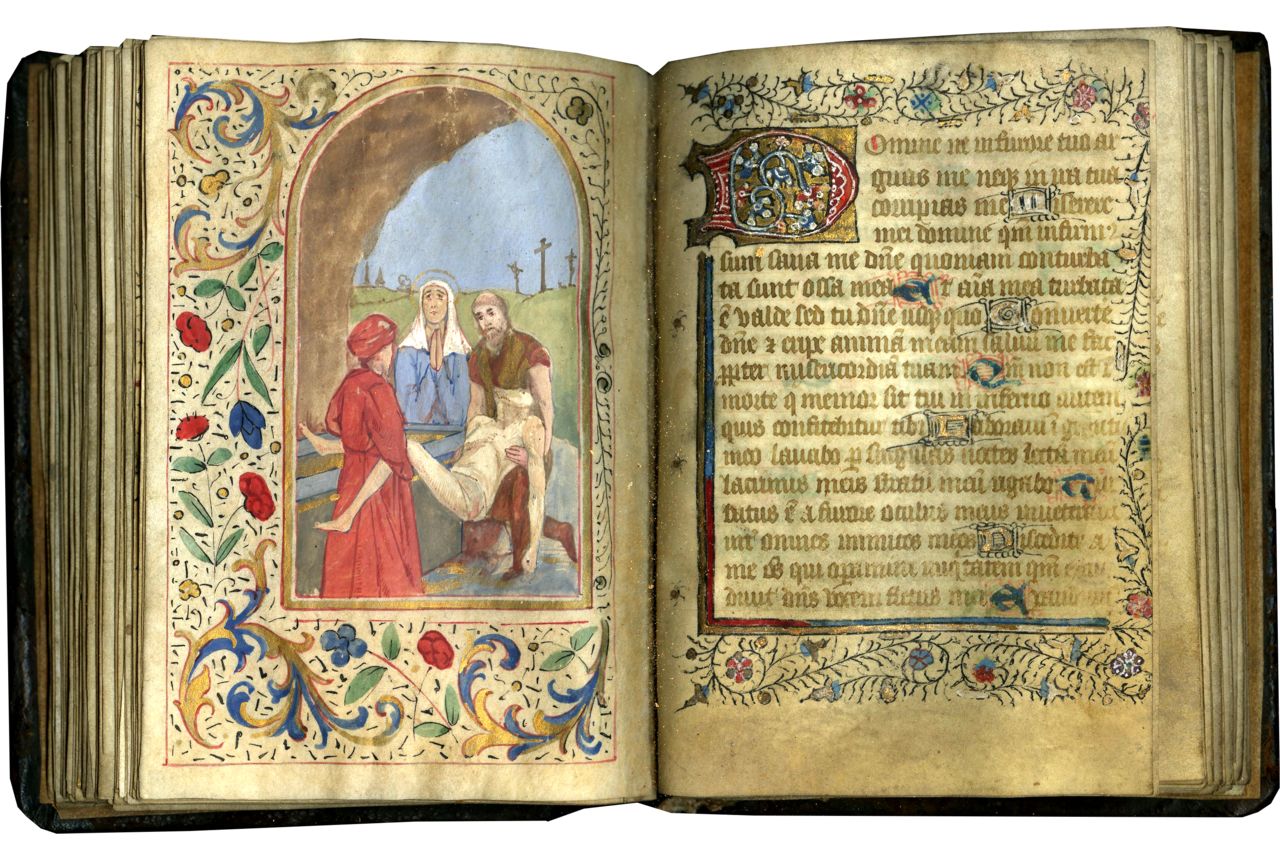 Domine ne in furore tuo ar
guas me neqꝫ in ira tua
corripias me Miserere
mei domine qm̄ infirmꝰ
sum sana me dn̄e quoniam conturba
ta sunt ossa mea Et aīa mea turbata
ē valde sed tu dn̄e usqꝫ quo Converte
dn̄e ⁊ eripe animā meam salvū me fac
ꝓpter misericordiā tuam Qm̄ non est ī
morte q memor sit tui in inferno autem
quis confitebitur tibi Laboravi ī gemitu
meo lavabo ꝑ singulas noctes lectū meū
lacrimis meis stratū meū rigabo Tur
batus ē a furore oculus meus inveteravi
int̄ omnes inimicos meos Discedite a
me oēs qui operamini iniq̄tatem qm̄
divit dn̄s vocem fletus mei